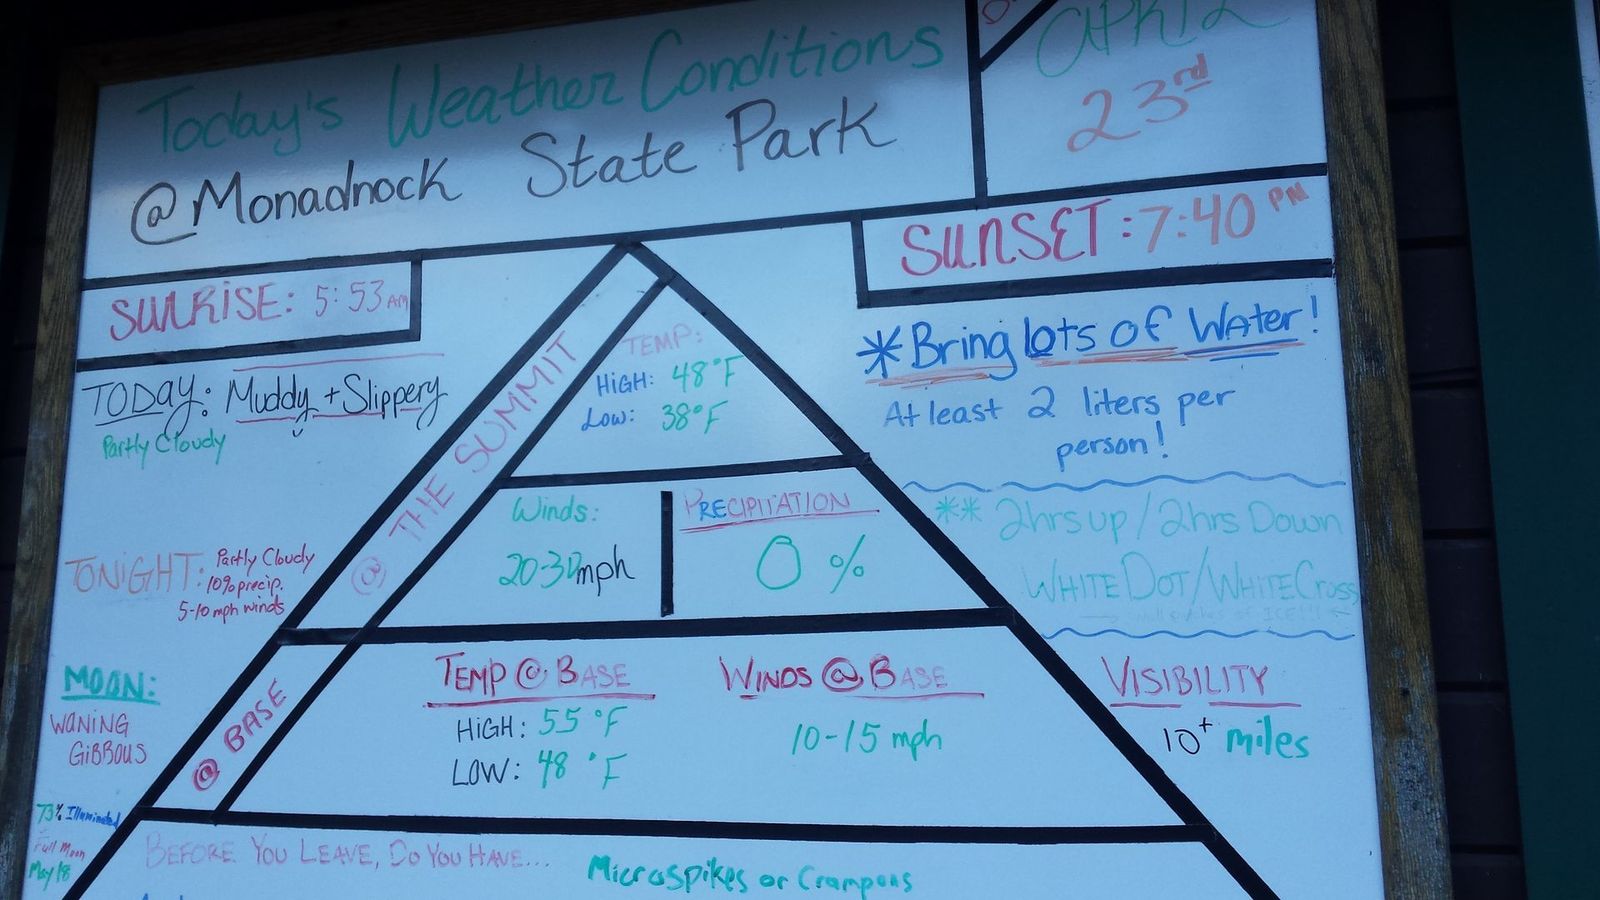 Today's Weather Conditions
@ Monadnock State Park
APRIL
23rd
SUNRISE: 5:53 AM
SUNSET: 7:40 PM
TODAY: Muddy + Slippery
Partly Cloudy
TONIGHT: Partly Cloudy
10% precip.
5-10 mph winds
MOON:
WANING
GIBBOUS
73% Illuminated
Full Moon
May 18
@ THE SUMMIT
TEMP:
HIGH: 48°F
LOW: 38°F
Winds:
20-30mph
PRECIPITATION
0 %
@ BASE
TEMP @ BASE
HIGH: 55 °F
LOW: 48 °F
WINDS @ BASE
10-15 mph
*Bring lots of Water!
At least 2 liters per
person!
** 2hrs up / 2hrs Down
WHITE DOT/WHITE Cross
VISIBILITY
10+ miles
BEFORE YOU LEAVE, DO YOU HAVE...
Microspikes or Crampons